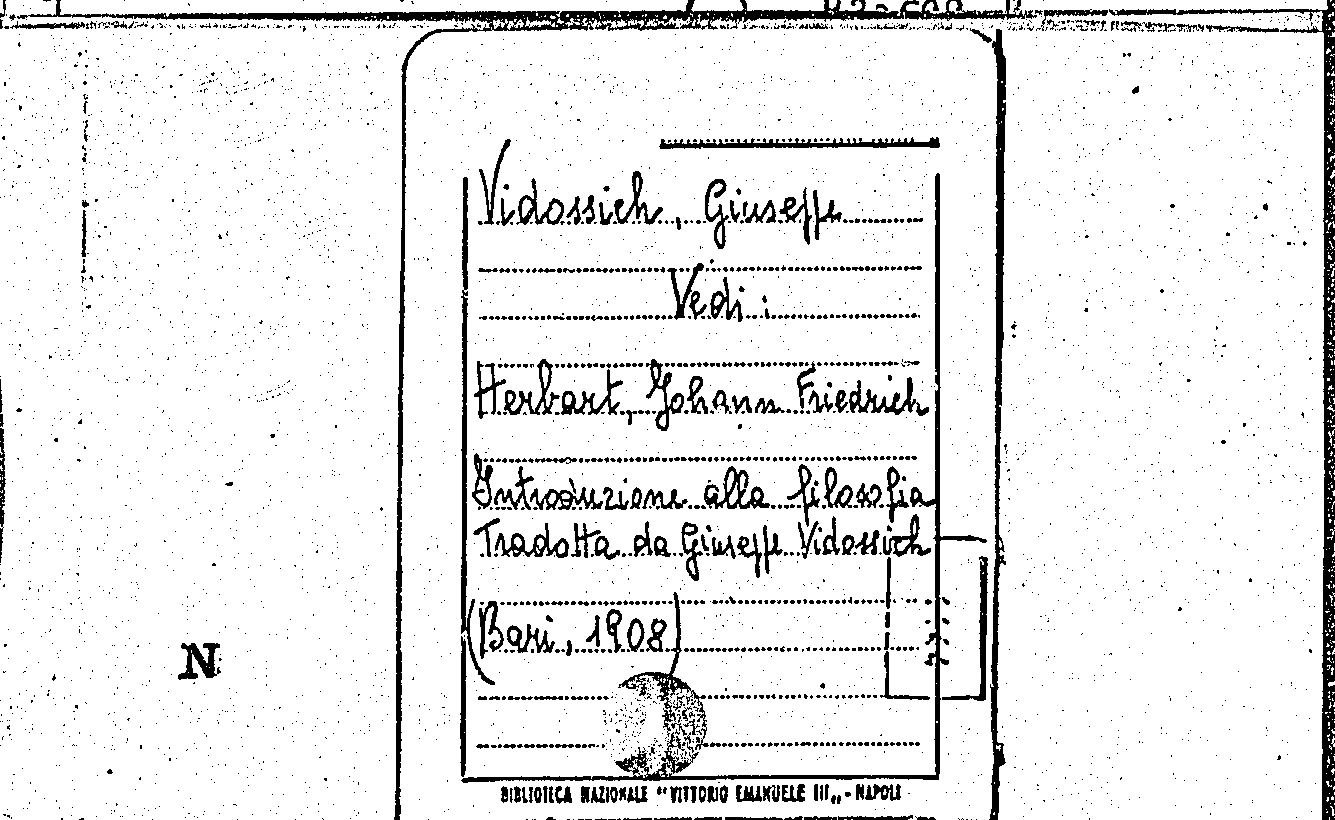 Vidossich, Giuseppe
Vedi:
Herbart, Johann Friedrich
Introduzione alla filosofia
Tradotta da Giuseppe Vidossich
(Bari, 1908)
N
BIBLIOTECA NAZIONALE "VITTORIO EMANUELE III„ - NAPOLI